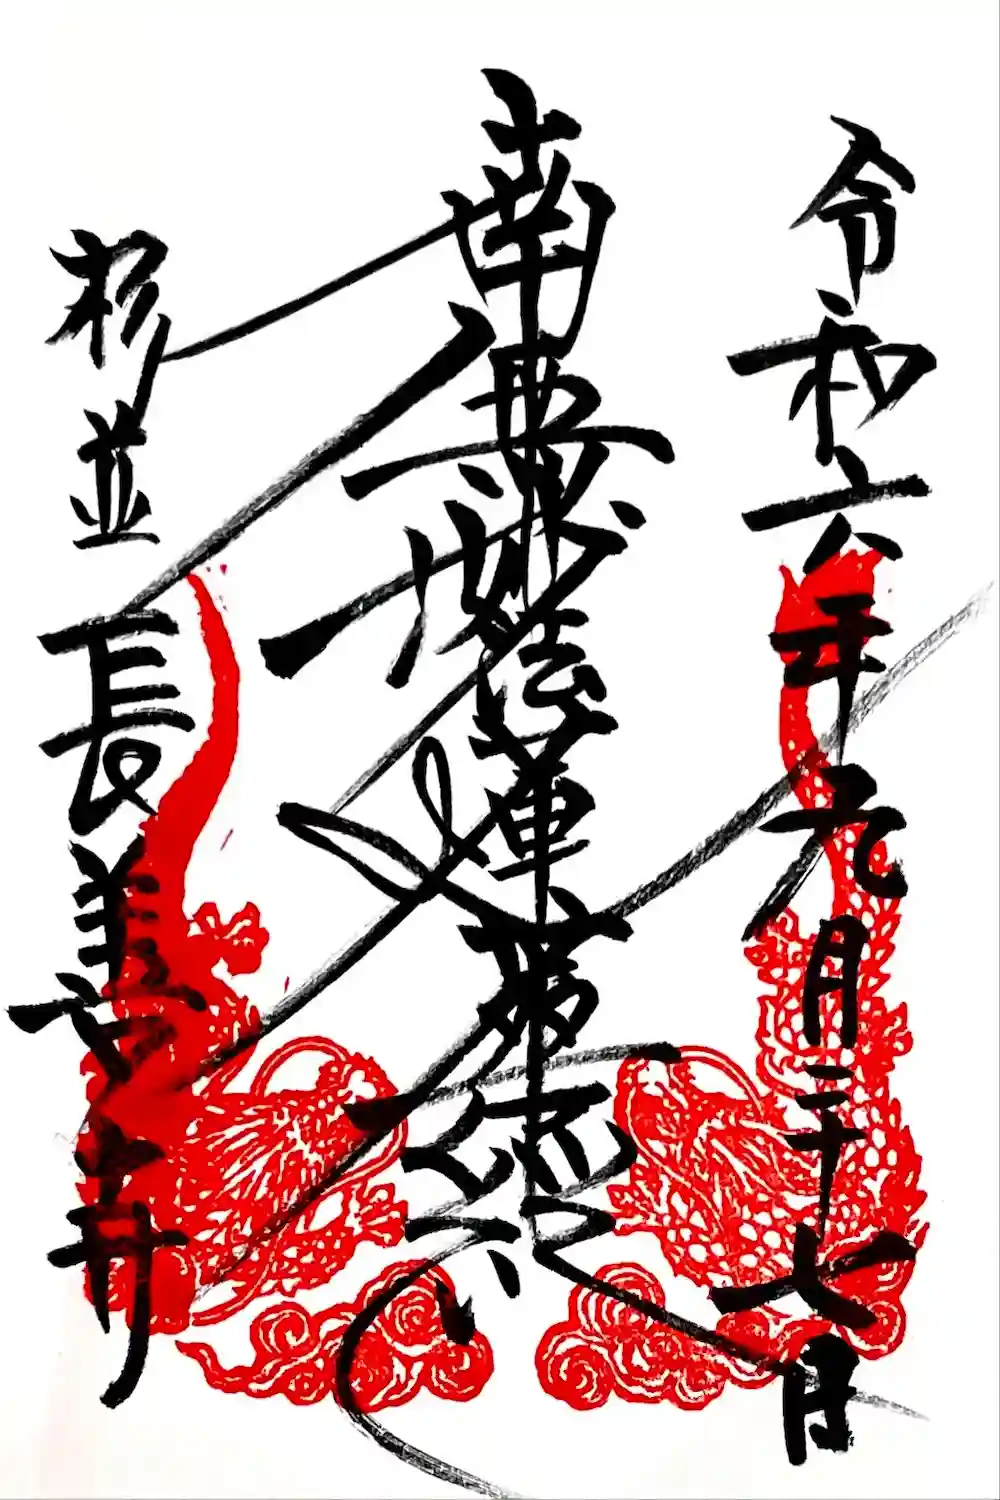 令和六年元月二十七日
南無妙法蓮華経
杉並
長善寺